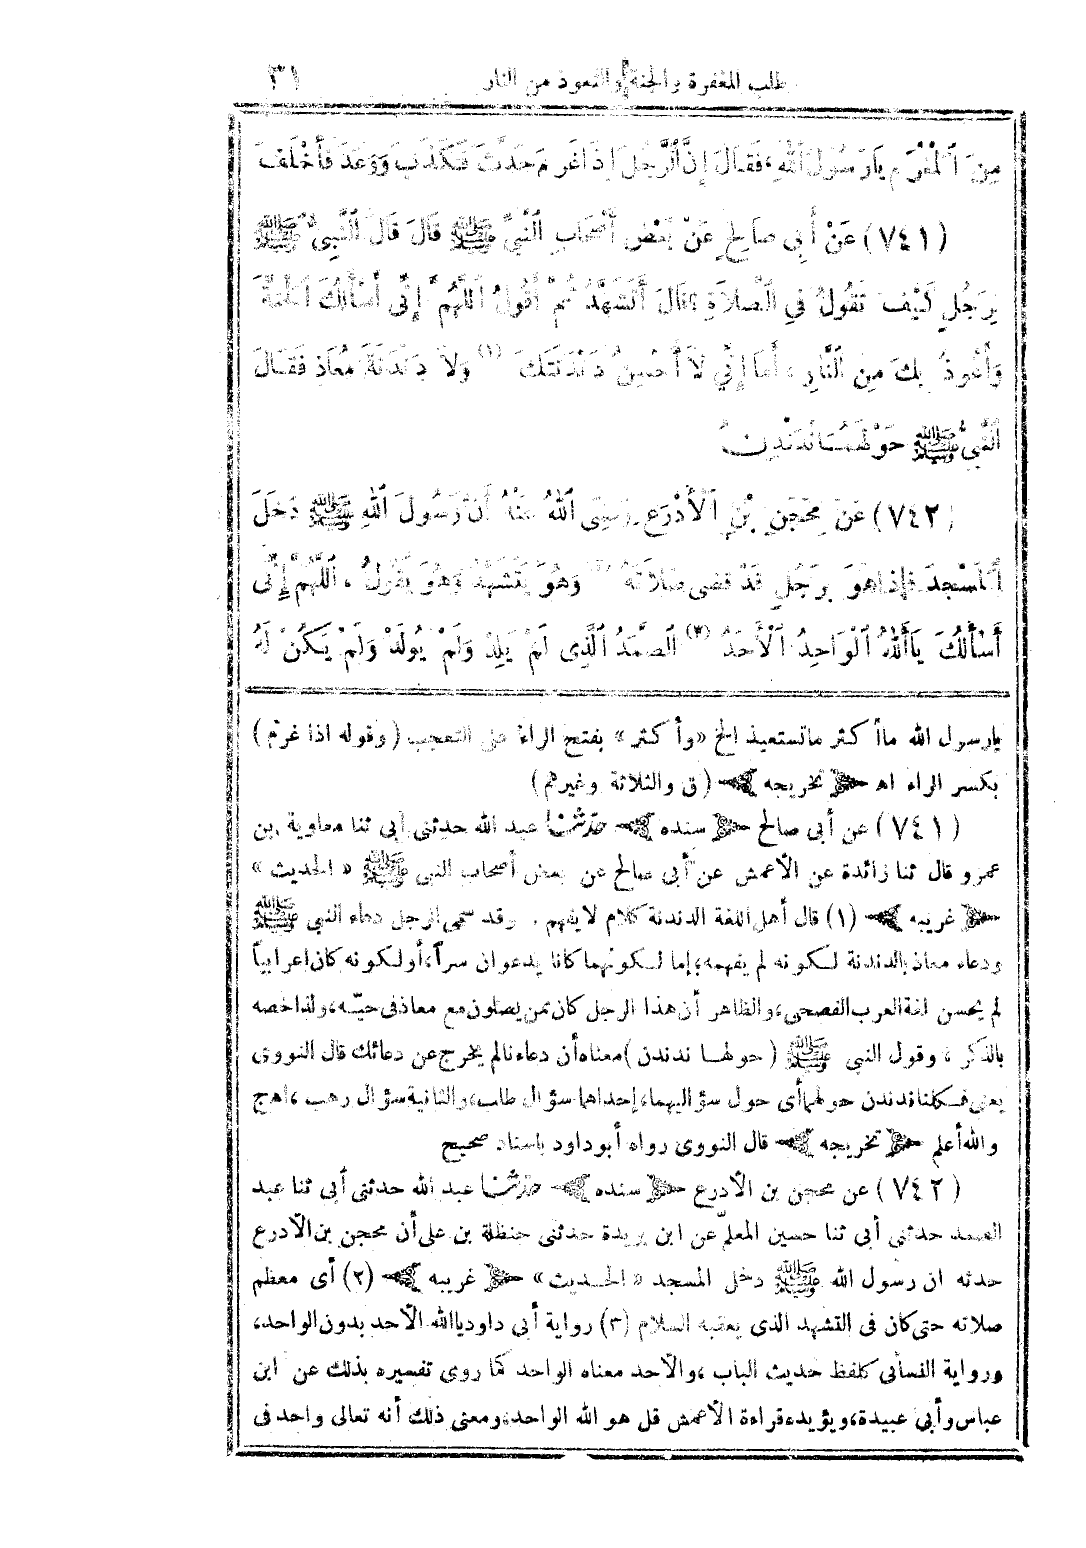 طلب المغفرة والجنة والتعوذ من النار ٣١
مِنَ ٱلْمَغْرَمِ يَارَسُولَ ٱللهِ، فَقَالَ إِنَّ ٱلرَّجُلَ إِذَا غَرِمَ حَدَّثَ فَكَذَبَ وَوَعَدَ فَأَخْلَفَ
(٧٤١) عَنْ أَبِى صَالِحٍ عَنْ بَعْضِ أَصْحَابِ ٱلنَّبِىِّ ﷺ قَالَ قَالَ ٱلنَّبِىُّ ﷺ
لِرَجُلٍ كَيْفَ تَقُولُ فِى ٱلصَّلاَةِ؟ قَالَ أَتَشَهَّدُ ثُمَّ أَقُولُ ٱللَّهُمَّ إِنِّى أَسْأَلُكَ ٱلْجَنَّةَ
وَأَعُوذُ بِكَ مِنَ ٱلنَّارِ، أَمَا إِنِّي لاَ أُحْسِنُ دَنْدَنَتَكَ (١) وَلاَ دَنْدَنَةَ مُعَاذٍ فَقَالَ
ٱلنَّبِىُّ ﷺ حَوْلَهُمَا نُدَنْدِنُ
(٧٤٢) عَنْ مِحْجَنِ بْنِ ٱلْأَدْرَعِ رَضِىَ ٱللهُ عَنْهُ أَنَّ رَسُولَ ٱللهِ ﷺ دَخَلَ
ٱلْمَسْجِدَ فَإِذَا هُوَ بِرَجُلٍ قَدْ قَضَى صَلاَتَهُ (٢) وَهُوَ يَتَشَهَّدُ وَهُوَ يَقُولُ، ٱللَّهُمَّ إِنِّى
أَسْأَلُكَ يَاأَللهُ ٱلْوَاحِدُ ٱلْأَحَدُ (٣) ٱلصَّمَدُ ٱلَّذِى لَمْ يَلِدْ وَلَمْ يُولَدْ وَلَمْ يَكُنْ لَهُ
يارسول الله ماأكثر ماتستعيذ الخ «وأكثر» بفتح الراء على التعجب (وقوله اذا غرم)
بكسر الراء اه ﴿تخريجه﴾ (ق والثلاثة وغيرهم)
(٧٤١) عن أبى صالح ﴿سنده﴾ حدثنا عبد الله حدثنى أبى ثنا معاوية بن
عمرو قال ثنا زائدة عن الأعمش عن أبى صالح عن بعض أصحاب النبى ﷺ «الحديث»
﴿غريبه﴾ (١) قال أهل اللغة الدندنة كلام لايفهم. وقد سمى الرجل دعاء النبى ﷺ
ودعاء معاذ بالدندنة لكونه لم يفهمه، إما لكونهما كانا يدعوان سراً، أو لكونه كان اعرابياً
لم يحسن لغة العرب الفصحى، والظاهر أن هذا الرجل كان ممن يصلون مع معاذ فى حيّه، ولذا خصه
بالذكر، وقول النبى ﷺ (حولهما ندندن) معناه أن دعاءنا لم يخرج عن دعائك قال النووى
يعنى فكلنا ندندن حولهما أى حول سؤاليهما، إحداهما سؤال طلب، والثانية سؤال رهب، اهج
والله أعلم ﴿تخريجه﴾ قال النووى رواه أبو داود باسناد صحيح
(٧٤٢) عن محجن بن الأدرع ﴿سنده﴾ حدثنا عبد الله حدثنى أبى ثنا عبد
الصمد حدثنى أبى ثنا حسين المعلم عن ابن بريدة حدثنى حنظلة بن على أن محجن بن الأدرع
حدثه ان رسول الله ﷺ دخل المسجد «الحديث» ﴿غريبه﴾ (٢) أى معظم
صلاته حتى كان فى التشهد الذى يعقبه السلام (٣) رواية أبى داود ياالله الأحد بدون الواحد،
ورواية النسأبى كلفظ حديث الباب، والأحد معناه الواحد كما روى تفسيره بذلك عن ابن
عباس وأبى عبيدة، ويؤيده قراءة الأعمش قل هو الله الواحد، ومعنى ذلك أنه تعالى واحد فى